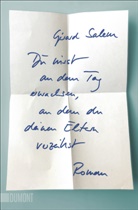 Gerard Salem
Du wirst
an dem Tag
erwachsen,
an dem du
deinen Eltern
verzeihst
Roman
DUMONT